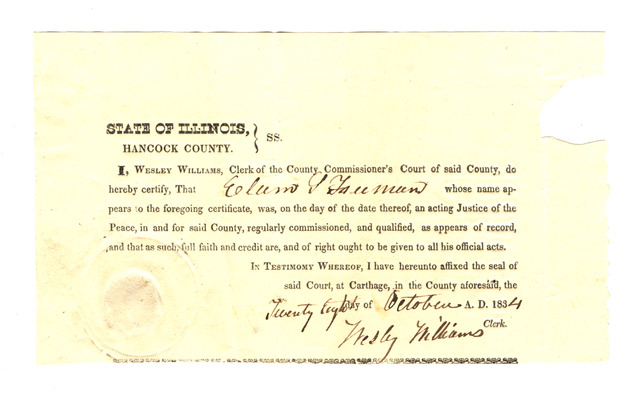 STATE OF ILLINOIS,
HANCOCK COUNTY. } SS.
I, WESLEY WILLIAMS, Clerk of the County Commissioner's Court of said County, do
hereby certify, That whose name ap-
pears to the foregoing certificate, was, on the day of the date thereof, an acting Justice of the
Peace, in and for said County, regularly commissioned, and qualified, as appears of record,
and that as such, full faith and credit are, and of right ought to be given to all his official acts.
IN TESTIMOMY WHEREOF, I have hereunto affixed the seal of
said Court, at Carthage, in the County aforesaid, the
Twenty eight day of October A. D. 1834
Wesley Williams Clerk.